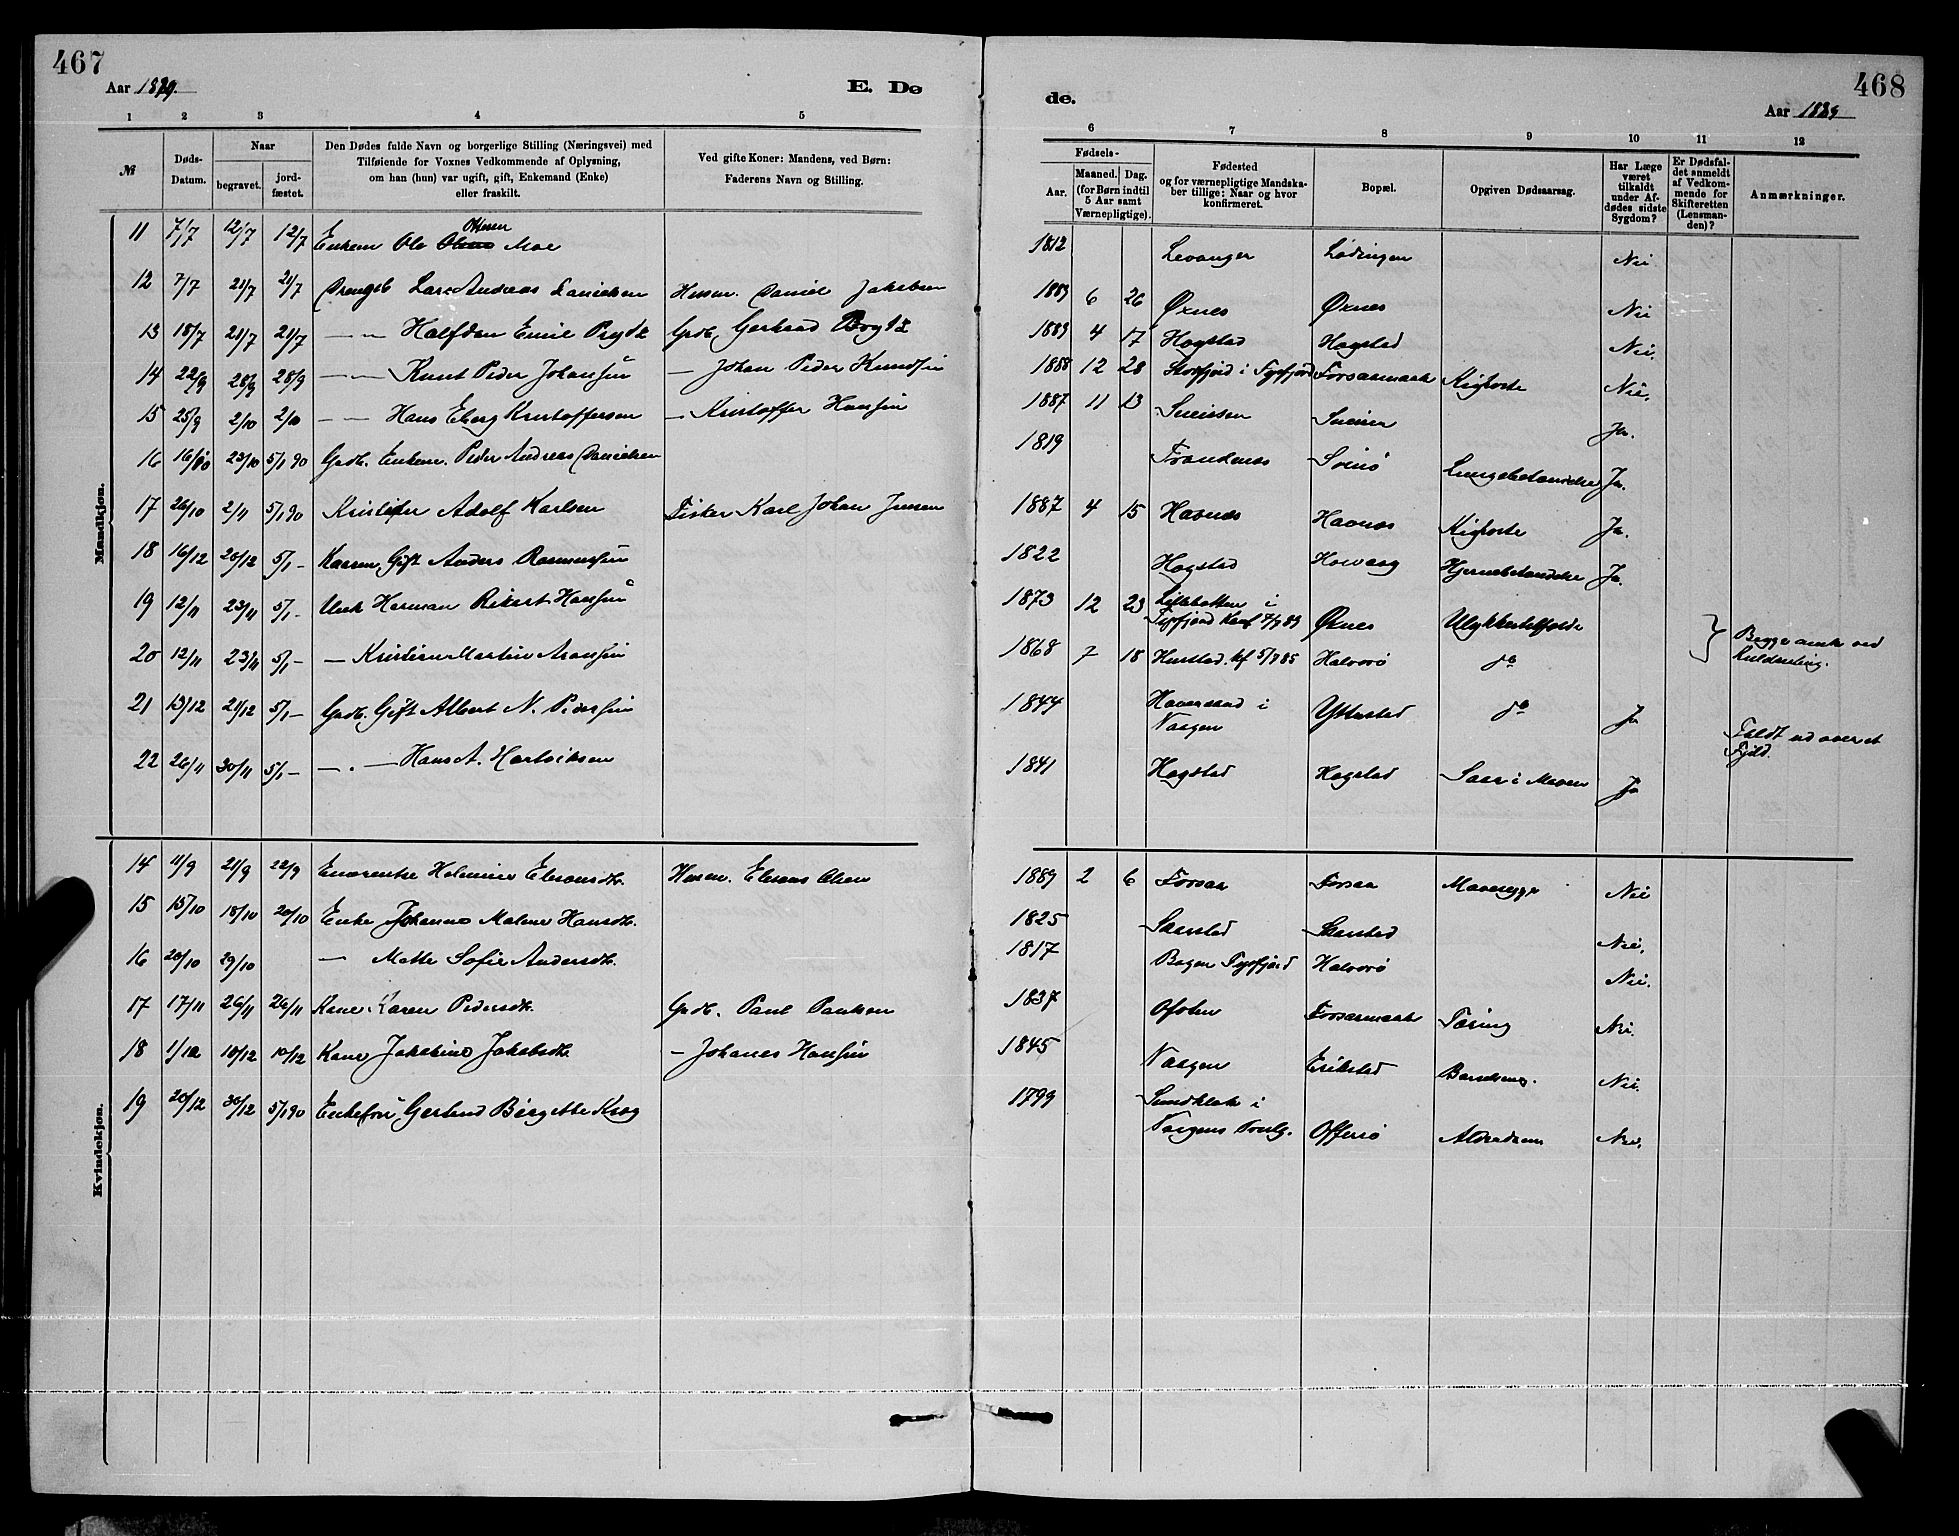 467
Aar 1889.
E. Dø
1 2 3 4 5
№
Døds-Datum.
Naar
begravet.
jord-fæstet.
Den Dødes fulde Navn og borgerlige Stilling (Næringsvei) med
Tilføiende for Voxnes Vedkommende af Oplysning,
om han (hun) var ugift, gift, Enkemand (Enke)
eller fraskilt.
Ved gifte Koner: Mandens, ved Børn:
Faderens Navn og Stilling.
Mandkjøn.
11 7/7 12/7 12/7 Enkem Ole Moe
12 7/7 21/7 21/7 Drengeb Lars Andreas Danielsen Husm. Daniel Jakobsen
13 18/7 21/7 21/7 — „ Halfdan Emil Prydz Grdb. Gerhard Prydz
14 22/9 28/9 28/9 — — Knut Peder Johansen — Johan Peder Knudsen
15 25/9 2/10 2/10 — — Hans Eberg Kristoffersen — Kristoffer Hansen
16 16/10 23/10 5/1 90 Grdb. Enkem. Peder Andreas Danielsen
17 26/10 2/11 5/1 90 Kristofer Adolf Karlsen Fisker Karl Johan Jensen
18 16/12 20/12 5/1 — Gift Anders Rasmussen
19 12/11 23/11 5/1 — Herman Rikart Hansen
20 12/11 23/11 5/1 — — Kristian Martin Aronsen
21 13/12 21/12 5/1 — Grdb. Gift Albert N. Pedersen
22 26/11 30/11 5/1 — — „ — Hans A. Hartviksen
Kvindekjøn.
14 11/9 21/9 22/9 Helmine
15 15/10 18/10 20/10 Enke Johanna Malene Hansdtr.
16 20/10 29/10 — Mette Sofie Andersdtr.
17 17/11 26/11 26/11 Kone Karen Pedersdtr. Grdb. Paul Paulsen
18 1/12 10/12 10/12 Kone Jakobine Jakobsdtr. — Johanes Hansen
19 20/12 30/12 5/1 90 Enkefru Gertrud Birgitte Krog
468
de.
Aar 1889
6 7 8 9 10 11 12
Fødsels-
Aar.
Maaned. Dag.
(for Børn indtil
5 Aar samt
Værnepligtige).
Fødested
og for værnepligtige Mandska-
ber tillige: Naar og hvor
konfirmeret.
Bopæl.
Opgiven Dødsaarsag.
Har Læge
været
tilkaldt
under Af-
dødes sidste
Sygdom?
Er Dødsfal-
det anmeldt
af Vedkom-
mende for
Skifteretten
(Lensman-
den)?
Anmærkninger.
1812 Levanger Lødingen Nei
1889 6 26 Øxnes Øxnes Nei
1889 4 17 Hogstad Hogstad Nei.
1888 12 28 Storfjord i Tysfjord Forsaamark Kighoste Nei.
1887 11 13 Ja.
1819 Trondenes Lungebetændelse Ja.
1887 4 15 Havnes Havnes Kighoste Ja.
1822 Hogstad Hjernebetændelse Ja.
1873 12 23 Lillebotten i
Tysfjord Konf 7/7 89 Øxnes Ulykkestilfælde
1868 7 18 Hustad. kf 5/7 85 Halvorø do
} Begge omk ved
Kuldseiling.
1844 Haversand i
Vaagen Yttrstad do Ja
Faldt ud over et
Fjeld.
1841 Hogstad Hogstad Saar i Maven Ja
1889 2 6 Forsaa Forsaa Mavesyge Nei
1825 Skarstad Skarstad Nei,
1817 Bogen Tysfjord Halvorø Nei.
1837 Ofoten Forsaamark Tæring Nei.
1845 Vaagen Erikstad Barselseng. Nei.
1799 Sundklak i
Vaagens Prstg. Offersø Alderdom Nei.